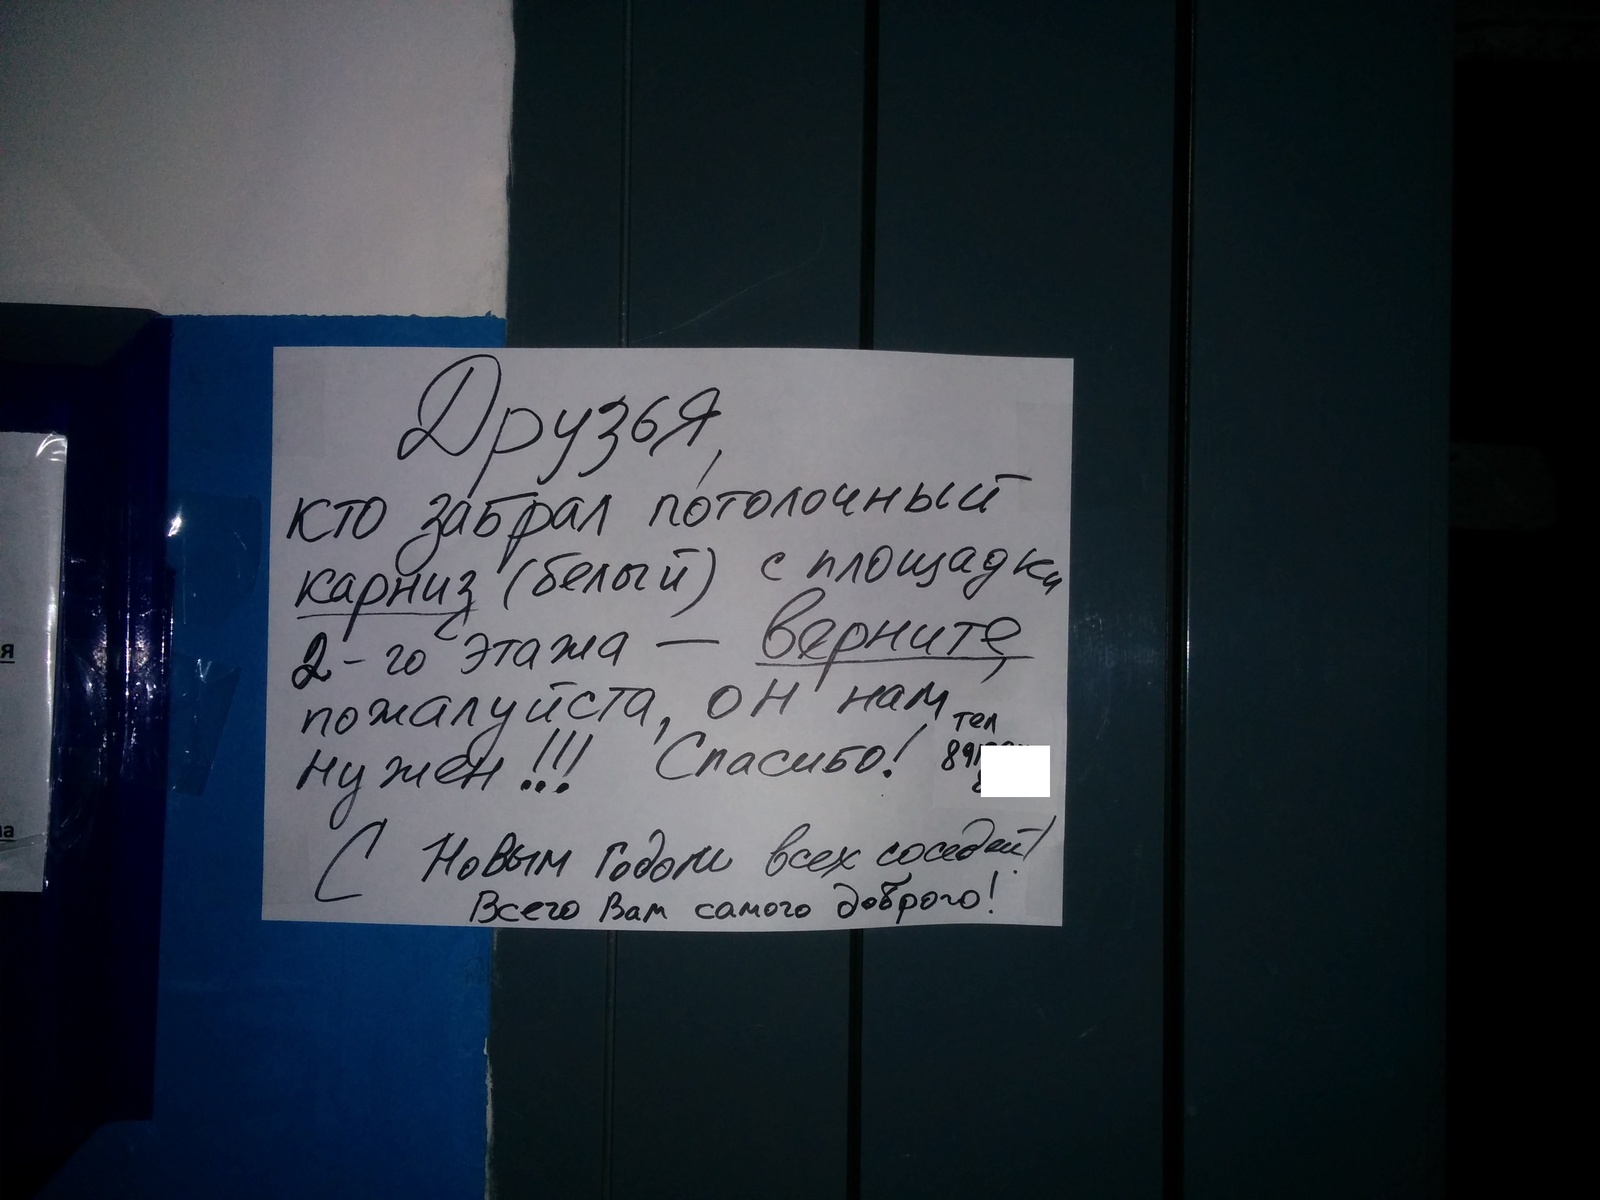 Друзья,
кто забрал потолочный
карниз (белый) с площадки
2-го этажа — верните,
пожалуйста, он нам
нужен!!! Спасибо!
тел
С Новым Годом всех соседей!
Всего Вам самого доброго!
я
на